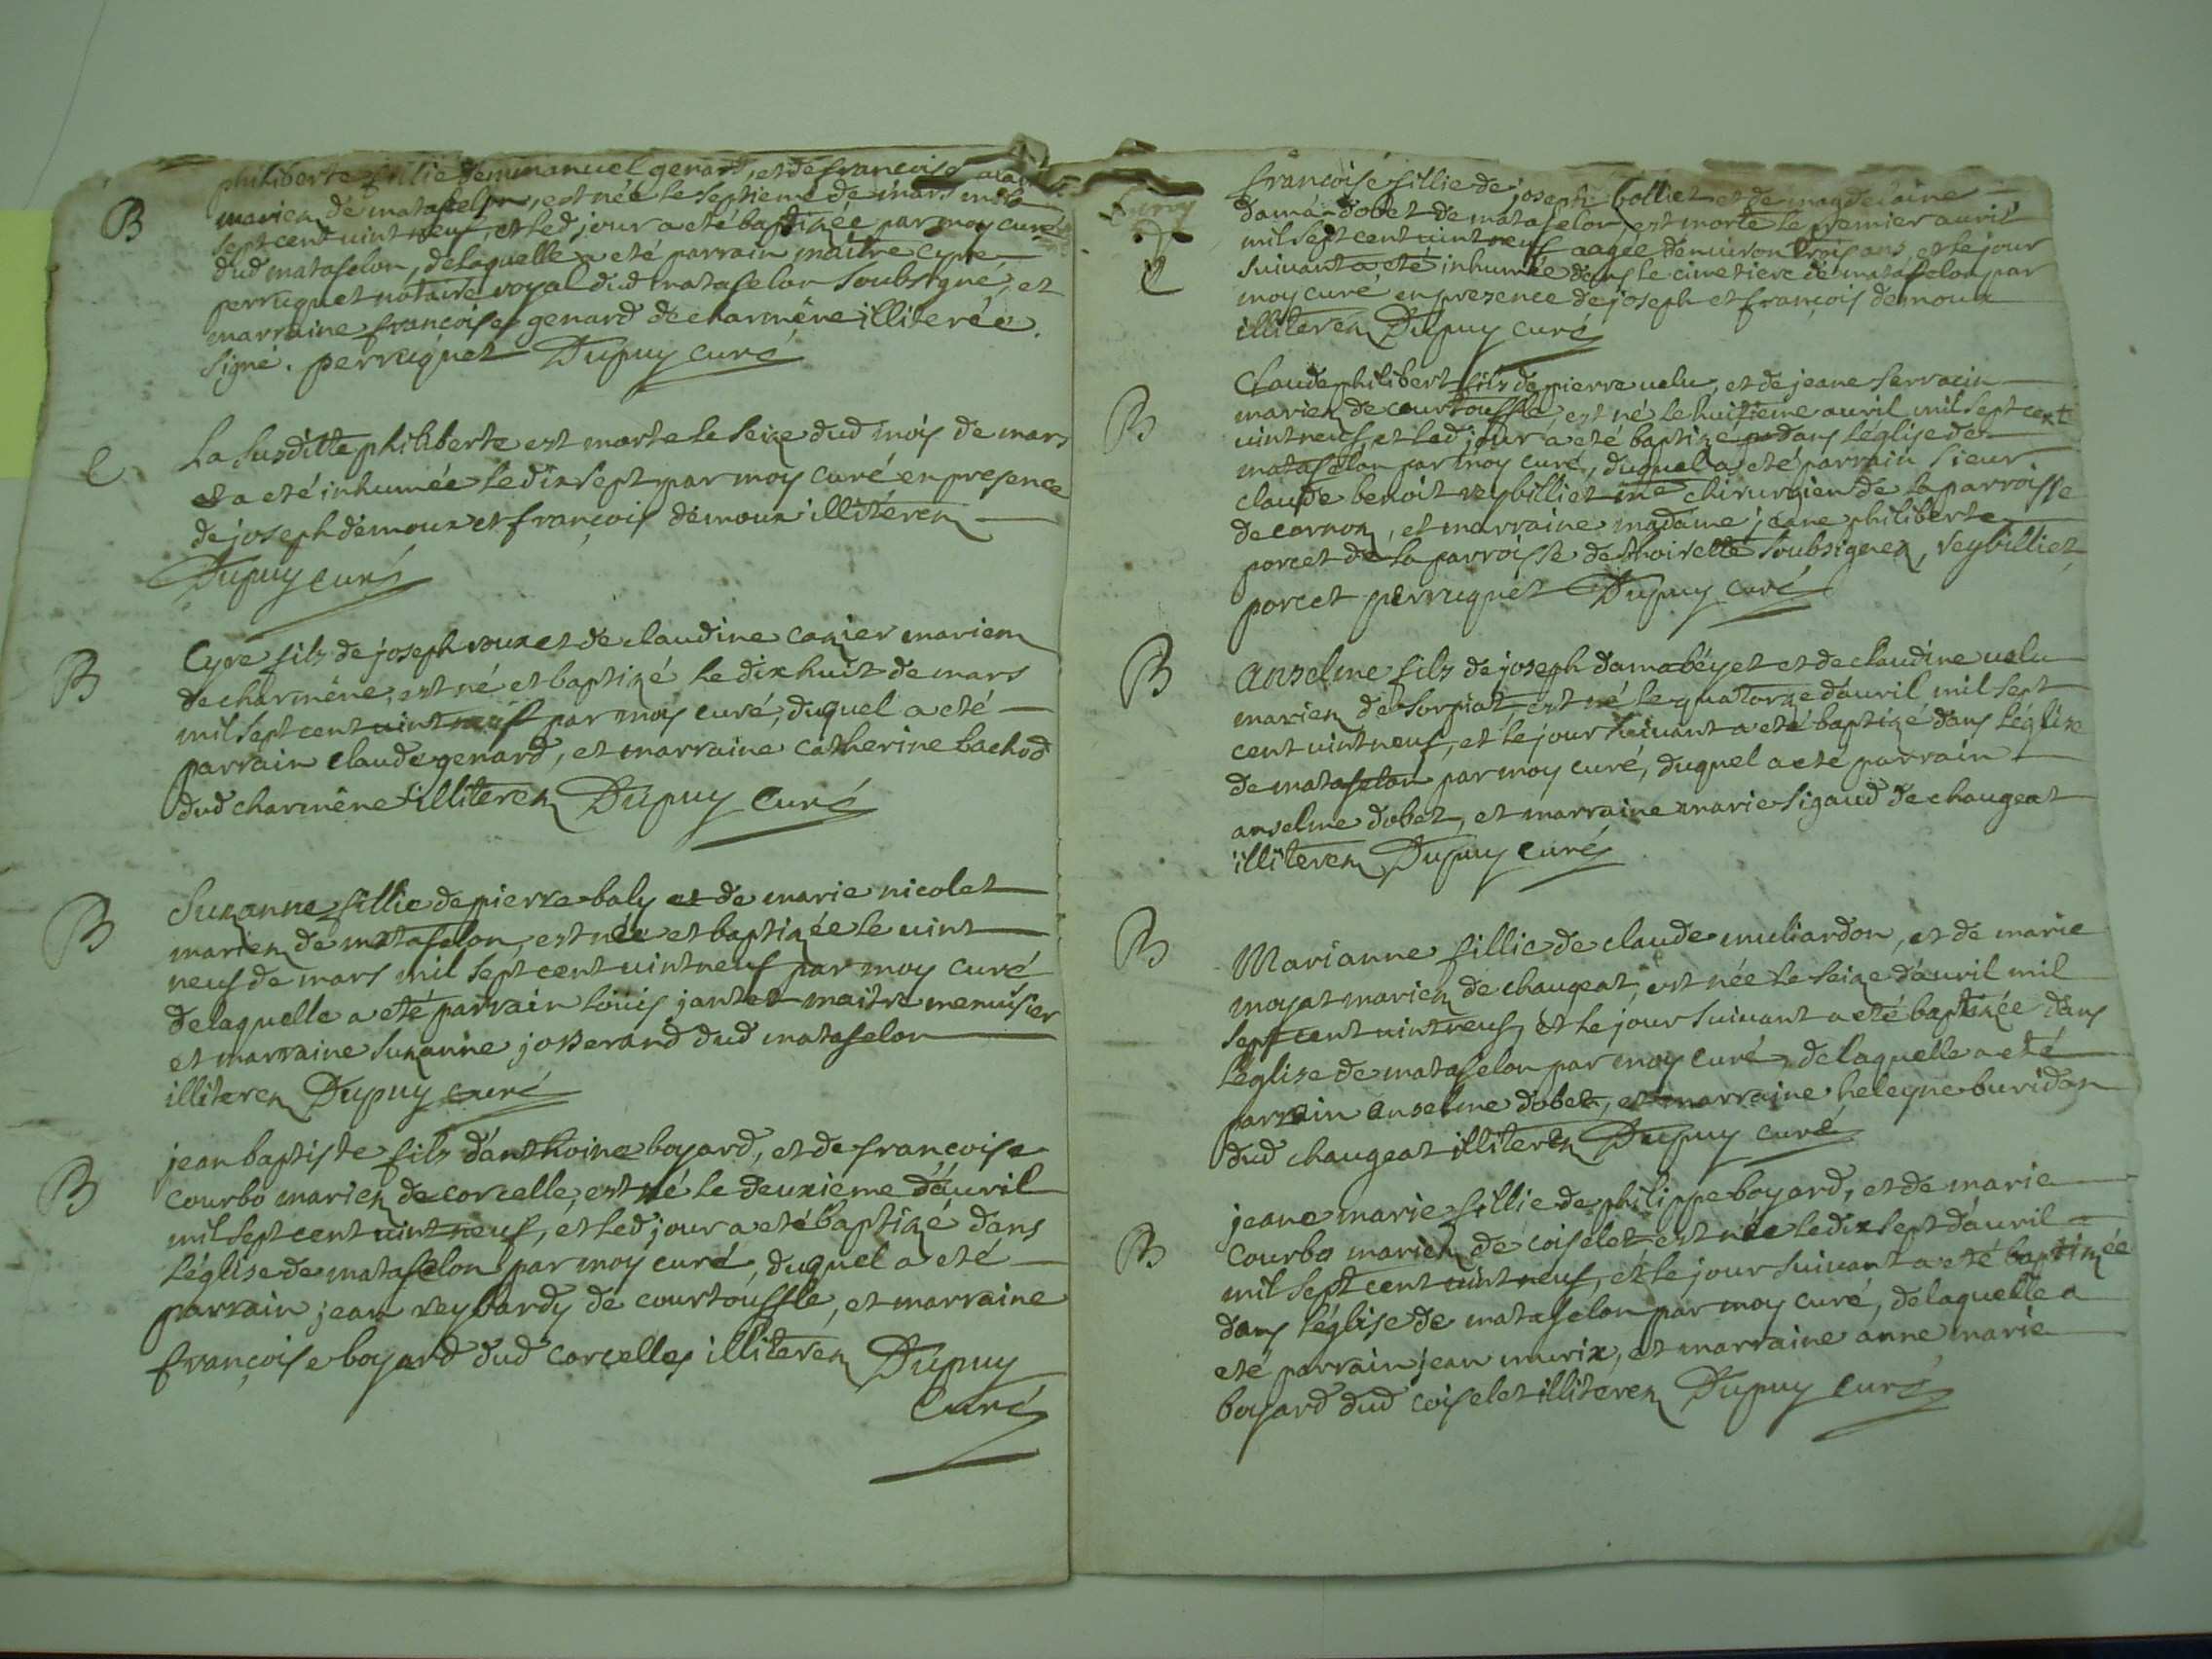 philiberte fillie demmanuel genard, et de francoise
B
mariez de matafelon, est née le septieme de mars mil
sept cent uint neuf, et led jour a eté baptizée par moy curé
dud matafelon, delaquelle a eté parrain maitre Cyre
perruquet notaire royal dud matafelon soubsigné, et
marraine francoise genard de charmêne illiterée.
signé. perruquet Dupuy curé
C
La susditte philiberte est morte le seize dud moy de mars
et a eté inhumée le dix sept par moy curé en presence
de joseph démoux et françois démoux illitérez
Dupuy curé
B
Cyre fils de joseph roux et de claudine cazier mariez
de charmêne, est né et baptizé le dix huit de mars
mil sept cent uint neuf par moy curé, duquel a eté
parrain claude genard, et marraine catherine bachod
dud charmêne illiterez Dupuy curé
B
Suzanne fillie de pierre baly et de marie nicolet
mariez de matafelon, est née et baptizée le uint
neuf de mars mil sept cent uint neuf par moy curé
delaquelle a eté parrain louis jantet maitre menusier
et marraine suzanne josserand dud matafelon
illiterez Dupuy curé
B
jean baptiste fils d'anthoine boyard, et de françoise
courbo mariez de corcelle, est né le deuxieme d'auril
mil sept cent uint neuf, et led jour a eté baptizé dans
l'église de matafelon par moy curé, duquel a eté
parrain jean reybardy de courtouffle, et marraine
françoise boyard dud corcelles illiterez Dupuy
Curé
C
francoise fillie de joseph bolliet et de magdelaine
dama-dobet de matafelon, est morte le premier auril
mil sept cent uint neuf aagée denuiron trois ans, et le jour
suiuant a eté inhumée dans le cimetiere de matafelon par
moy curé en presence de joseph et françois demoux
illiterez Dupuy curé
B
Claude philibert fils de pierre uelu, et de jeane serracin
mariez de courtouffle, est né le huitieme auril mil sept cent
uint neuf, et led jour a eté baptizé dans l'église de
matafelon par moy curé, duquel a eté parrain sieur
claude benoit reybilliet me chirurgien de la parroisse
de cornoz, et marraine madame jeane philiberte
porcet de la parroisse de thoirette soubsignez, reybilliet
porcet perruquet Dupuy curé
B
anselme fils de joseph damabéyet et de claudine uelu
mariez de sorpiat est né le quatorze d'auril mil sept
cent uint neuf, et le jour suiuant a eté baptizé dans l'église
de matafelon par moy curé, duquel a eté parrain
anselme dobet, et marraine marie sigaud de chaugeat
illiterez Dupuy curé
B
Marianne fillie de claude muliardon, et de marie
moyat mariez de chaugeat, est née le seize d'auril mil
sept cent uint neuf, et le jour suiuant a eté baptizée dans
l'église de matafelon par moy curé, delaquelle a eté
parrain anselme dobet, et marraine heleyne buridon
dud chaugeat illiterez Dupuy curé
B
jeane marie fillie de philippe boyard, et de marie
courbo mariez de coiselet est née le dix sept d'auril
mil sept cent uint neuf, et le jour suiuant a eté baptizée
dans l'église de matafelon par moy curé, delaquelle a
eté parrain jean murix, et marraine anne marie
boyard dud coiselet illitérez Dupuy curé